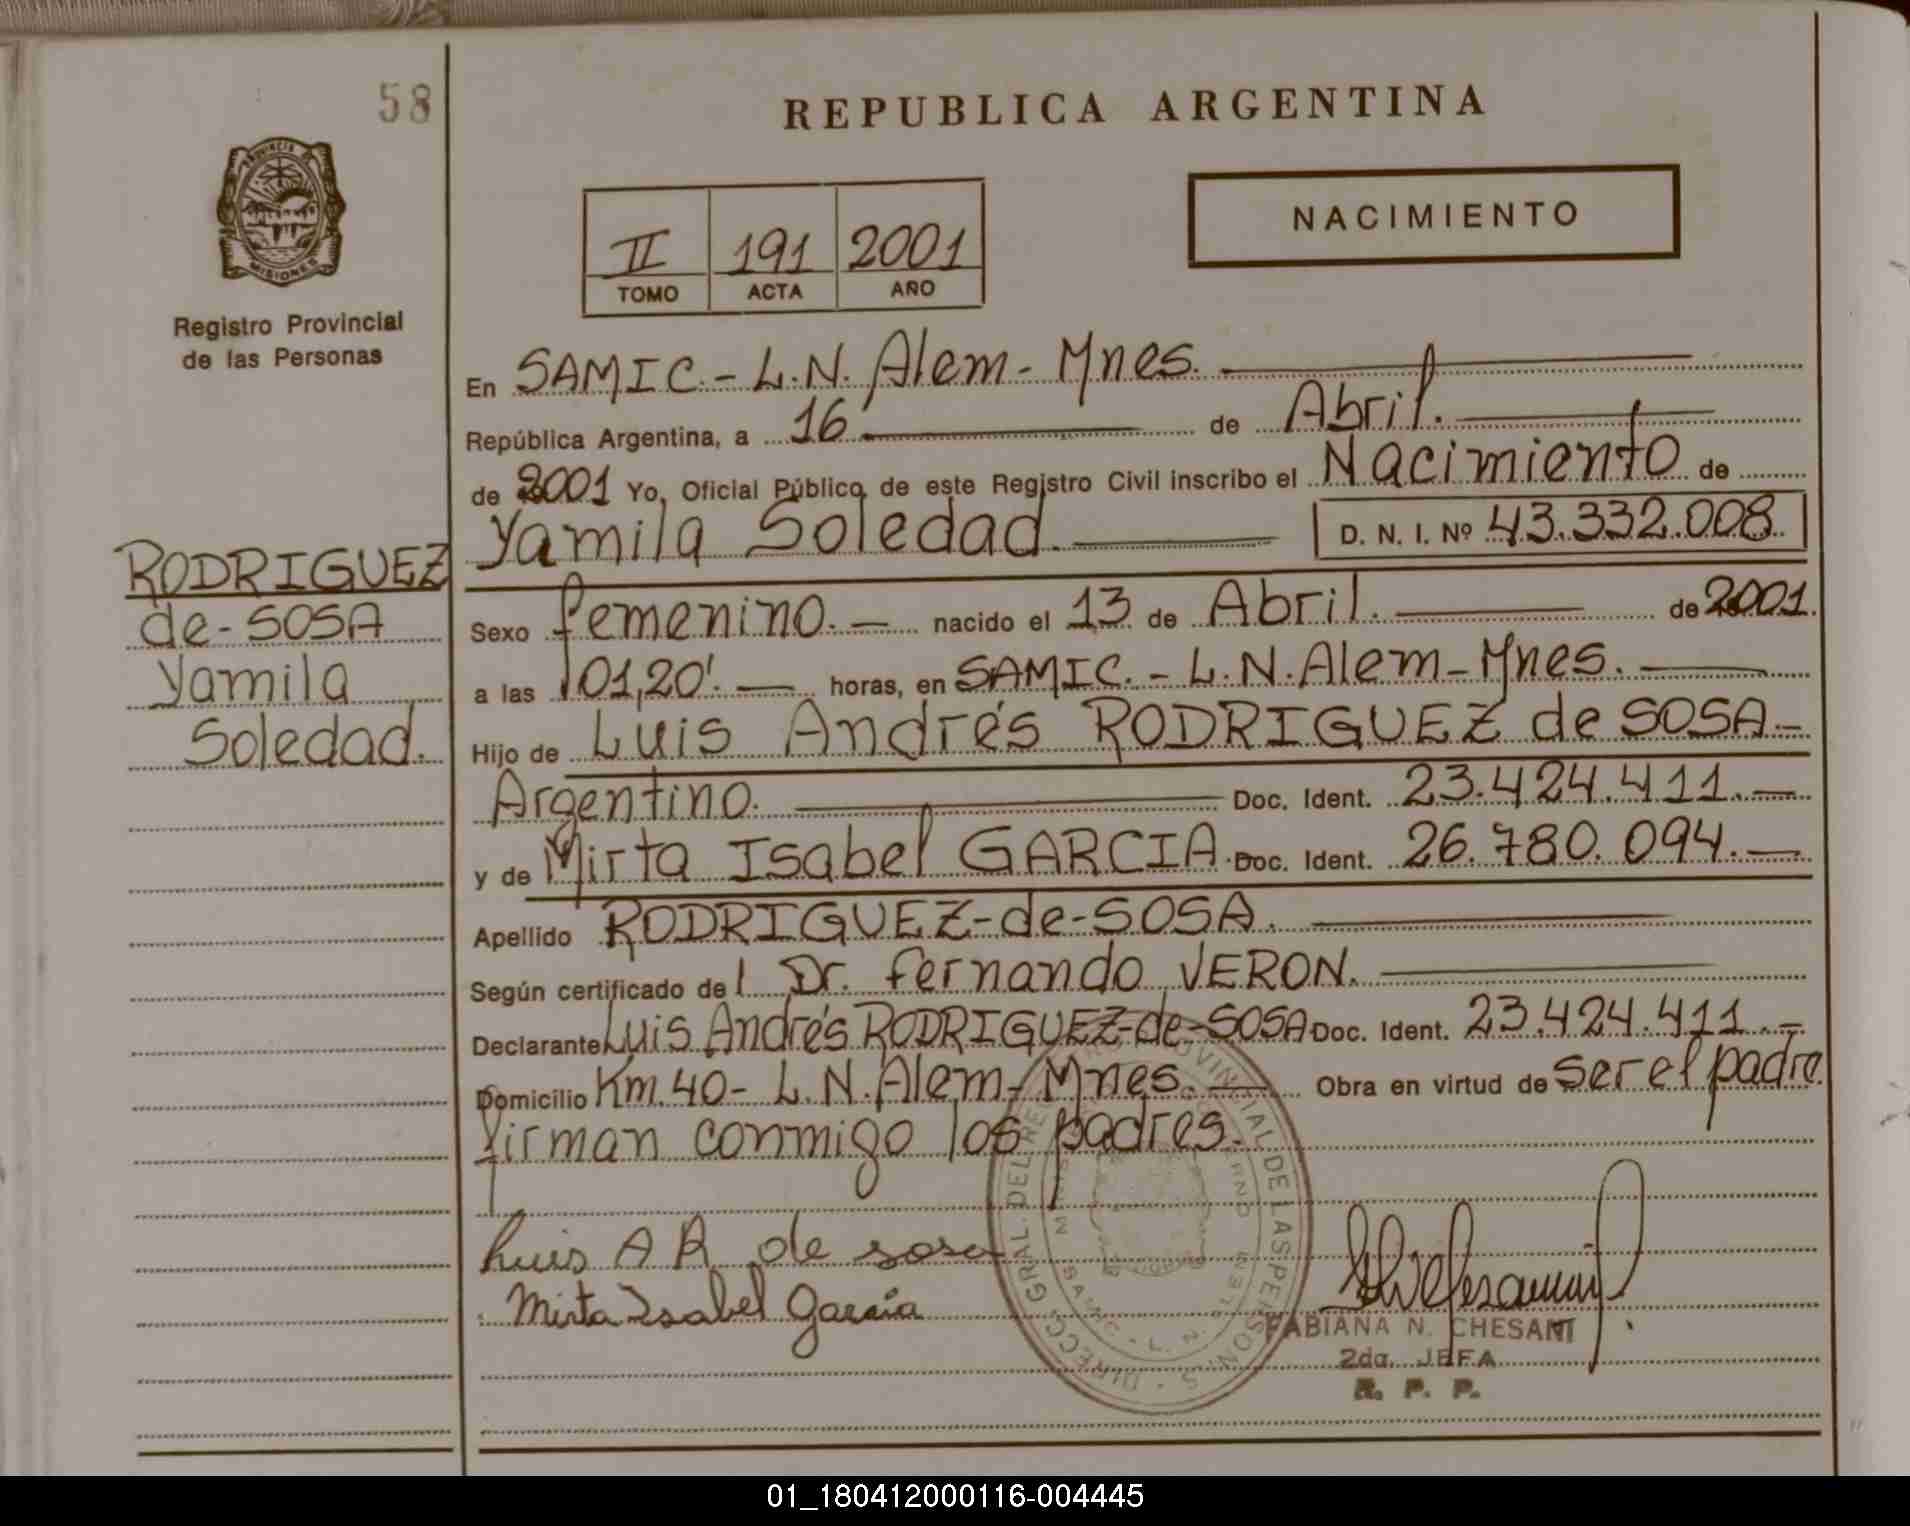 58
REPUBLICA ARGENTINA
PROVINCIA DE
MISIONES
Registro Provincial
de las Personas
II 191 2001
TOMO ACTA AÑO
NACIMIENTO
En SAMIC.- L.N. Alem- Mnes.
República Argentina, a 16 de Abril.
de 2001 Yo, Oficial Público de este Registro Civil inscribo el Nacimiento de
Yamila Soledad. D. N. I. Nº 43.332.008.
RODRIGUEZ
de-SOSA
Yamila
Soledad.
Sexo femenino.- nacido el 13 de Abril. de 2001.
a las 01,20'. horas, en SAMIC.- L.N. Alem- Mnes.
Hijo de Luis Andrés RODRIGUEZ de SOSA-
Argentino. Doc. Ident. 23.424.411.-
y de Mirta Isabel GARCIA. Doc. Ident. 26.780.094.-
Apellido RODRIGUEZ-de-SOSA.
Según certificado de l Dr. Fernando VERON.
Declarante Luis Andrés RODRIGUEZ-de-SOSA Doc. Ident. 23.424.411.-
Domicilio Km.40- L.N. Alem- Mnes. Obra en virtud de ser el padre.
firman conmigo los padres.
Luis A R de sosa
Mirta Isabel García
FABIANA N. CHESANI
2da. JEFA
R. P. P.
01_180412000116-004445